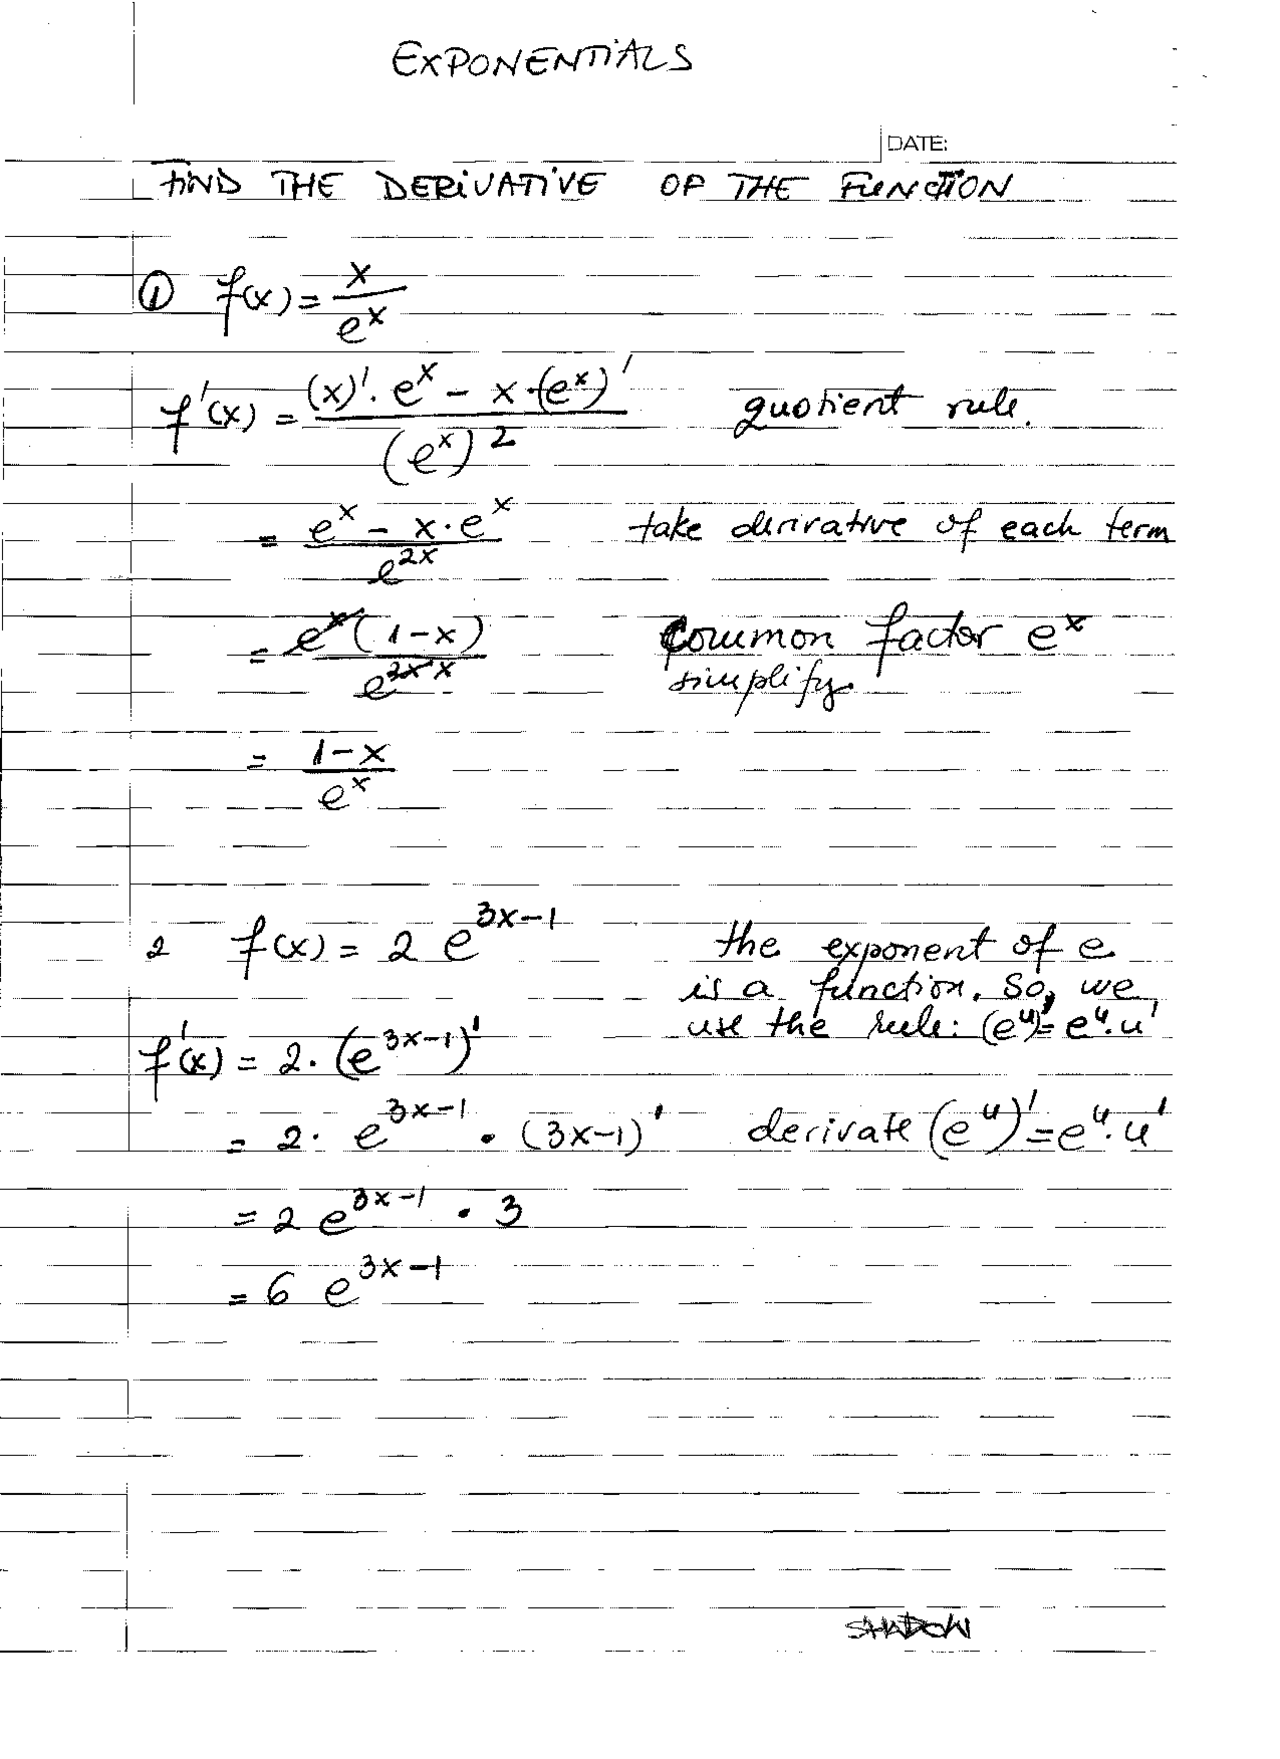 EXPONENTIALS
DATE:
FIND THE DERIVATIVE OF THE FUNCTION
① f(x) = x / e^x
f'(x) = ((x)'. e^x - x·(e^x)') / (e^x)^2 quotient rule.
= (e^x - x·e^x) / e^2x take derivative of each term
= e^x(1-x) / e^2x x Common factor e^x
simplify.
= (1-x) / e^x
2 f(x) = 2 e^3x-1 the exponent of e
is a function. So, we
use the rule: (e^u)' = e^u.u'
f'(x) = 2. (e^3x-1)'
= 2. e^3x-1 · (3x-1)' derivate (e^u)' = e^u.u'
= 2 e^3x-1 · 3
= 6 e^3x-1
SHADOW